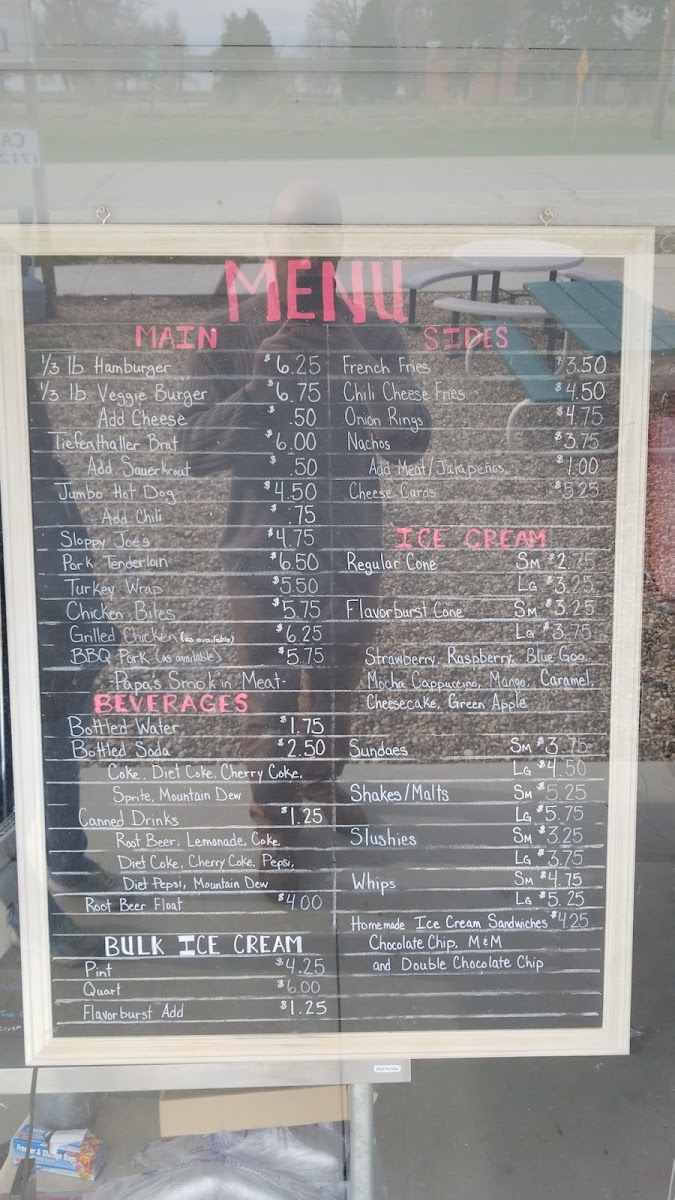 MENU
MAIN
1/3 lb. Hamburger $6.25
1/3 lb. Veggie Burger $6.75
Add Cheese $.50
Tiefenthaller Brat $6.00
Add Sauerkraut $.50
Jumbo Hot Dog $4.50
Add Chili $.75
Sloppy Joes $4.75
Pork Tenderloin $6.50
Turkey Wrap $5.50
Chicken Bites $5.75
Grilled Chicken (as available) $6.25
BBQ Pork (as available) $5.75
-Papa's Smok'in Meat-
BEVERAGES
Bottled Water $1.75
Bottled Soda $2.50
Coke, Diet Coke, Cherry Coke,
Sprite, Mountain Dew
Canned Drinks $1.25
Root Beer, Lemonade, Coke,
Diet Coke, Cherry Coke, Pepsi,
Diet Pepsi, Mountain Dew
Root Beer Float $4.00
BULK ICE CREAM
Pint $4.25
Quart $6.00
Flavorburst Add $1.25
SIDES
French Fries $3.50
Chili Cheese Fries $4.50
Onion Rings $4.75
Nachos $3.75
Add Meat/Jalapeños $1.00
Cheese Curds $5.25
ICE CREAM
Regular Cone SM $2.75
LG $3.25
Flavorburst Cone SM $3.25
LG $3.75
Strawberry, Raspberry, Blue Goo
Mocha Cappuccino, Mango, Caramel,
Cheesecake, Green Apple
Sundaes SM $3.75
LG $4.50
Shakes/Malts SM $5.25
LG $5.75
Slushies SM $3.25
LG $3.75
Whips SM $4.75
LG $5.25
Homemade Ice Cream Sandwiches $4.25
Chocolate Chip, M&M
and Double Chocolate Chip